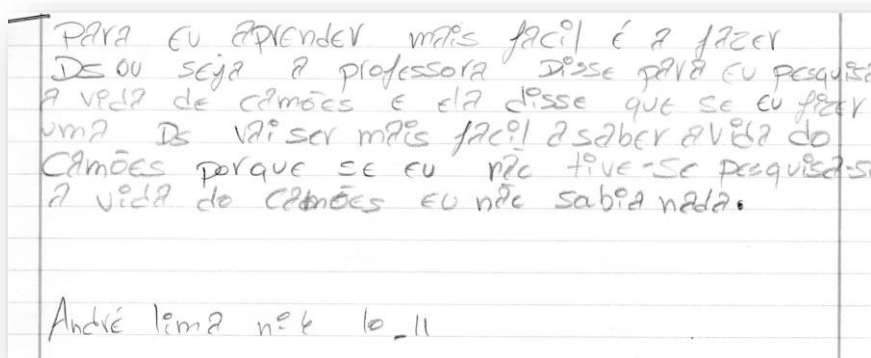 Para eu aprender mais facil é a fazer
Ds ou seja a professora Disse para eu pesquisa
a vida de camões e ela disse que se eu fizer
uma Ds vai ser mais facil a saber a vida do
Camões porque se eu não tive-se pesquisa-s
a vida do Camões eu não sabia nada.
André lima nº 10_11